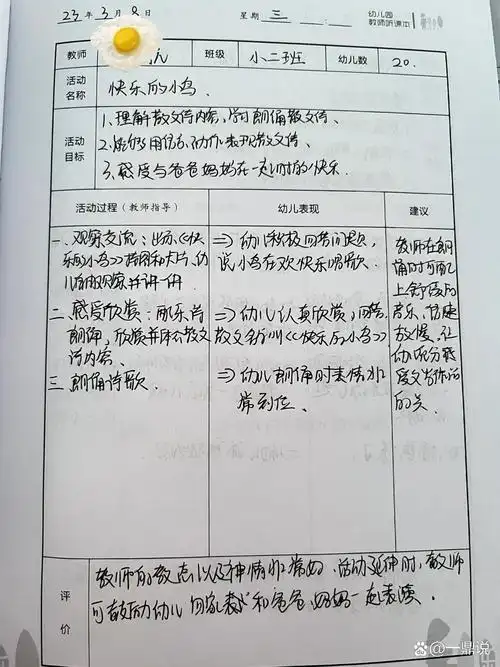 23年3月8日 星期 三 幼儿园
教师听课本
教师 班级 小二班 幼儿数 20.
活动名称 快乐的小鸟.
活动目标
1、理解散文诗内容,学习朗诵散文诗、
2、能够用语言、动作表现散文诗、
3、感受与爸爸妈妈在一起时的快乐.
活动过程(教师指导) 幼儿表现 建议
一、观察交流:出示《快
乐的小鸟》背景图和大片,幼
儿有观察并讲一讲
⇒幼儿积极回答问题,
说小鸟在欢快乐唱歌.
二、感受欣赏:配乐
朗诵,欣赏并散文
诗内容.
⇒幼儿认真欣赏,回答
散文名字叫《快乐的小鸟》
三、朗诵诗歌
⇒幼儿朗诵时表情非
常到位.
教师在朗
诵时可配
上舒缓的
音乐,
放慢,让
幼儿充分感
受文诗
的美.
评价
教师的教态以及神情非常好,活动延伸时,教师
可鼓励幼儿回家和爸爸、妈妈一起表演.
@一鼎说